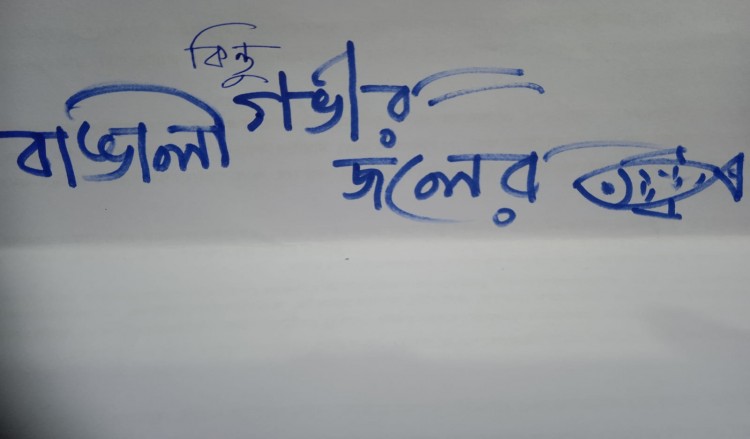 কিন্তু
বাঙালী গভীর
জলের